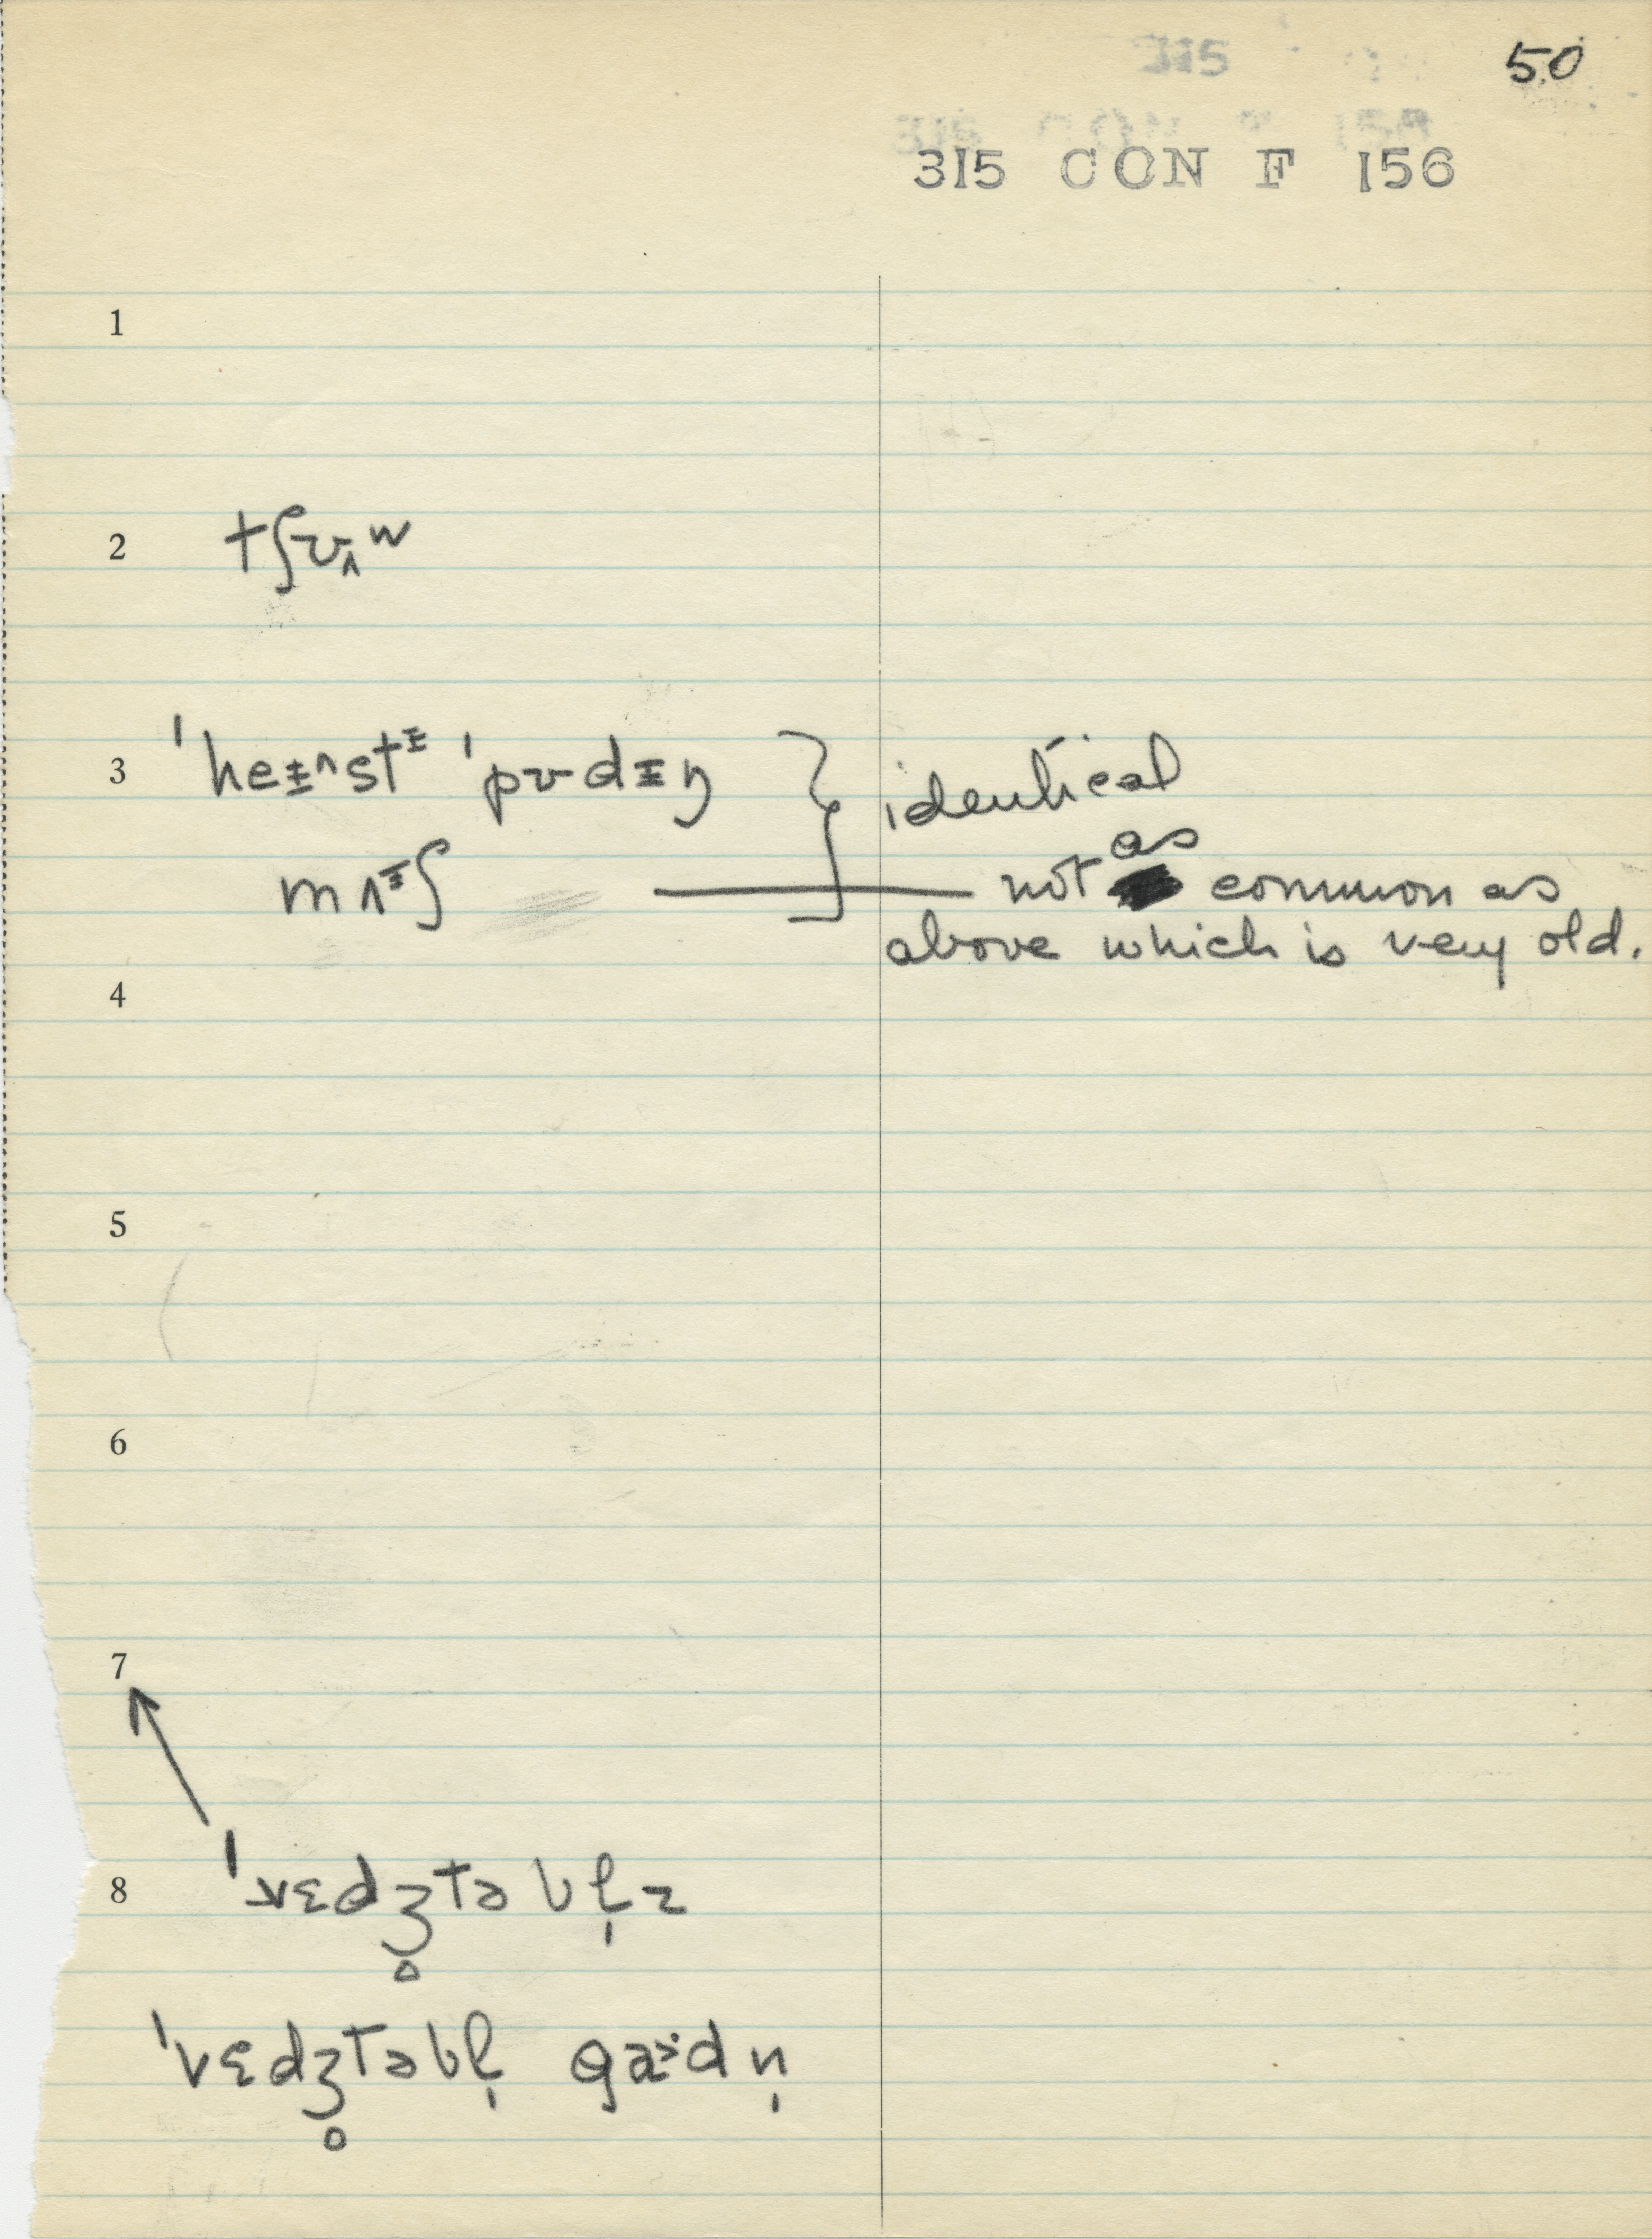 50
315
315 CON F 156
1
2 tʃʊʌʷ
3 ˈheɪ^stᶦ ˈpʊdɪŋ } identical
mʌᶦʃ —— not as common as
above which is very old.
4
5
6
7
8 ˈvɛdʒ̥təbl̩z
ˈvɛdʒ̥təbl̩ gɑ˞dn̩